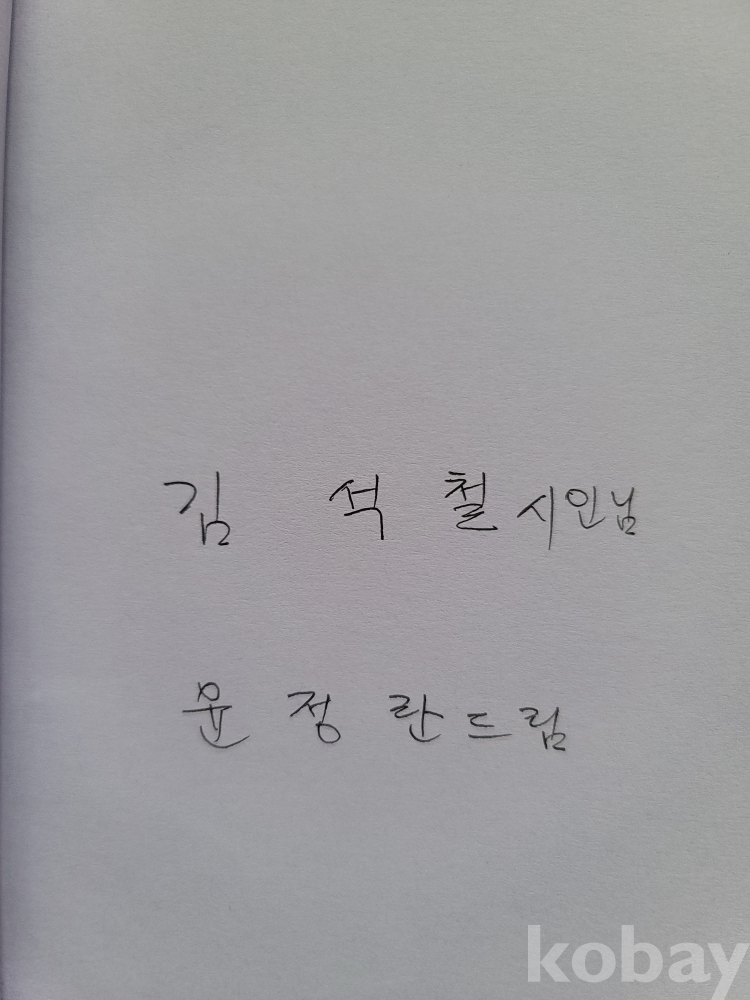 김 석 철 시인님
윤 정 란 드림
kobay